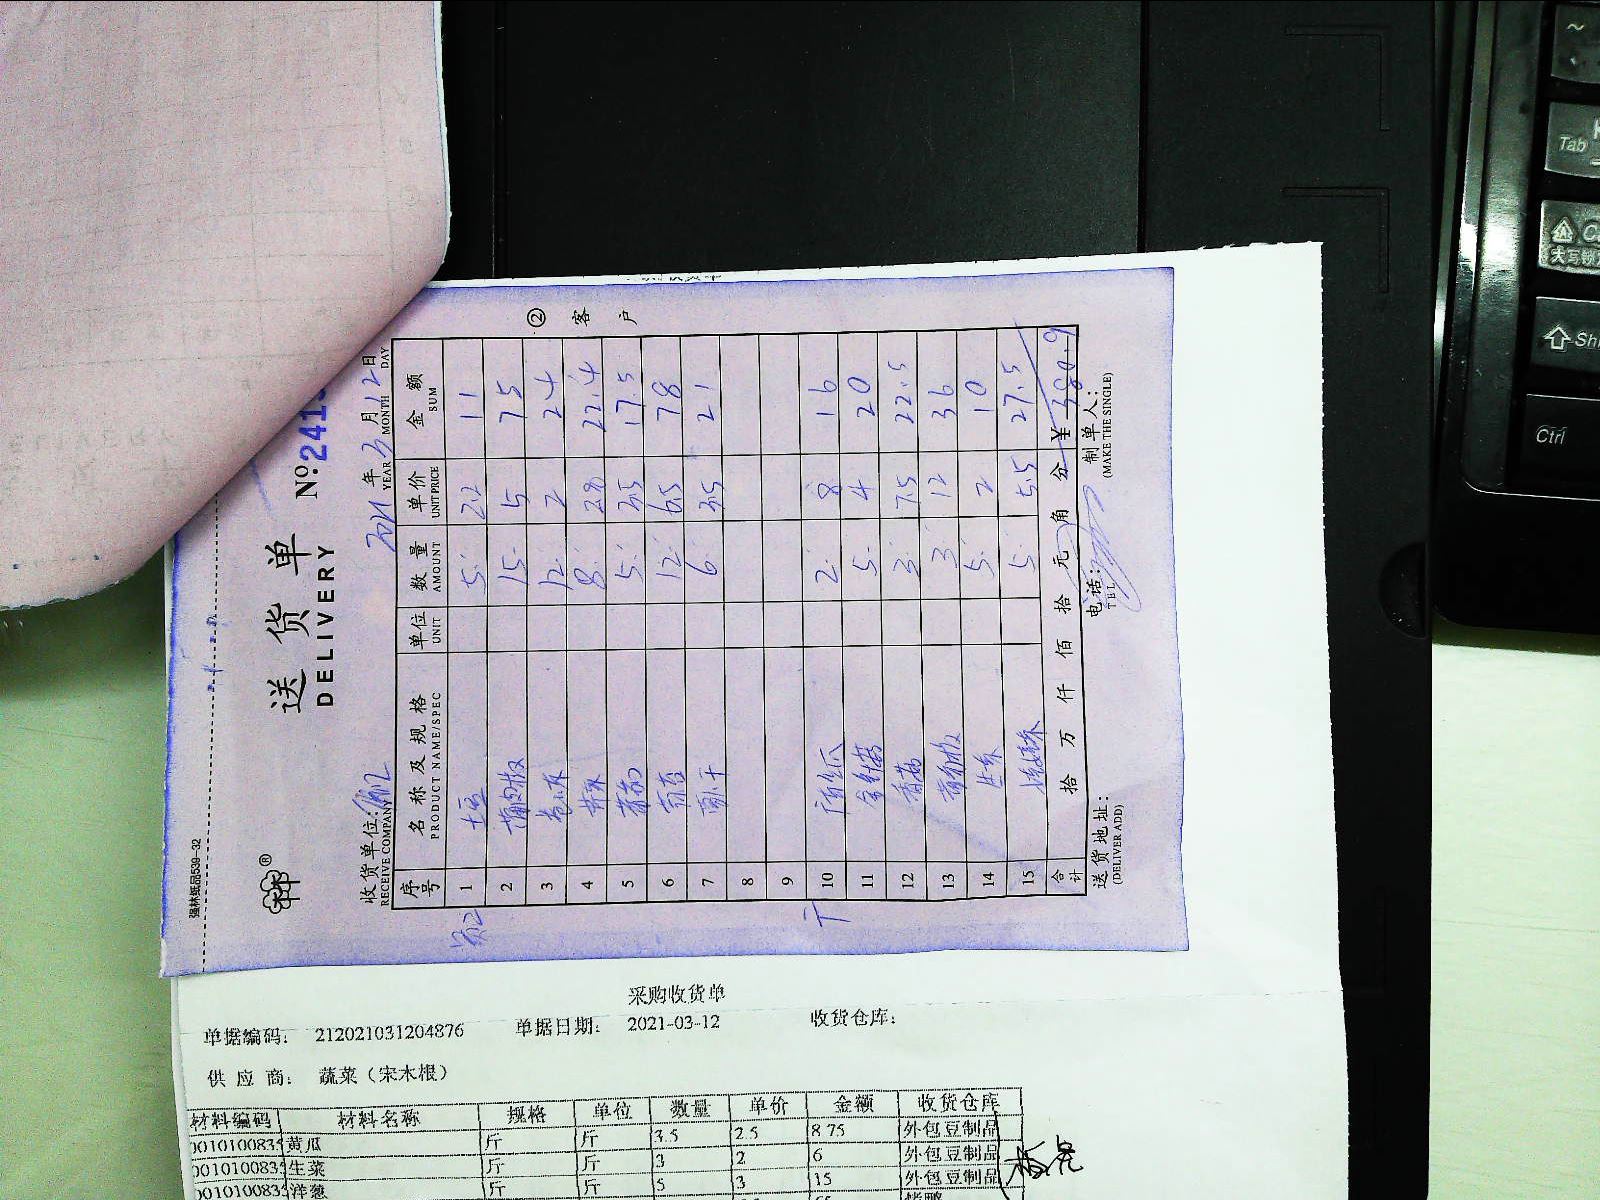 强林纸品539-32
送货单
DELIVERY
№ 241
收货单位:
RECEIVE COMPANY
2021 年 3 月 12 日
YEAR MONTH DAY
② 客户
序号 名称及规格 单位 数量 单价 金额
PRODUCT NAME/SPEC UNIT AMOUNT UNIT PRICE SUM
1 土豆 5. 2.2 11
2 15. 5 75
3 12. 2 24
4 8. 2.8 22.4
5 5. 3.5 17.5
6 12. 6.5 78
7 6. 3.5 21
8
9
10 2. 8 16
11 金针菇 5. 4 20
12 香菇 3. 7.5 22.5
13 3. 12 36
14 生菜 5. 2 10
15 5. 5.5 27.5
合计 拾 万 仟 佰 拾 元 角 分 ¥ 380.9
送货地址: 电话: 制单人:
(DELIVER ADD) TEL (MAKE THE SINGLE)
采购收货单
单据编码: 212021031204876 单据日期: 2021-03-12 收货仓库:
供应商: 蔬菜(宋木根)
材料编码 材料名称 规格 单位 数量 单价 金额 收货仓库
0010100835 黄瓜 斤 斤 3.5 2.5 8.75 外包豆制品
0010100835 生菜 斤 斤 3 2 6 外包豆制品
0010100835 洋葱 斤 斤 5 3 15 外包豆制品
烤鸭
~
Tab
Ca
大写锁定
Shi
Ctrl